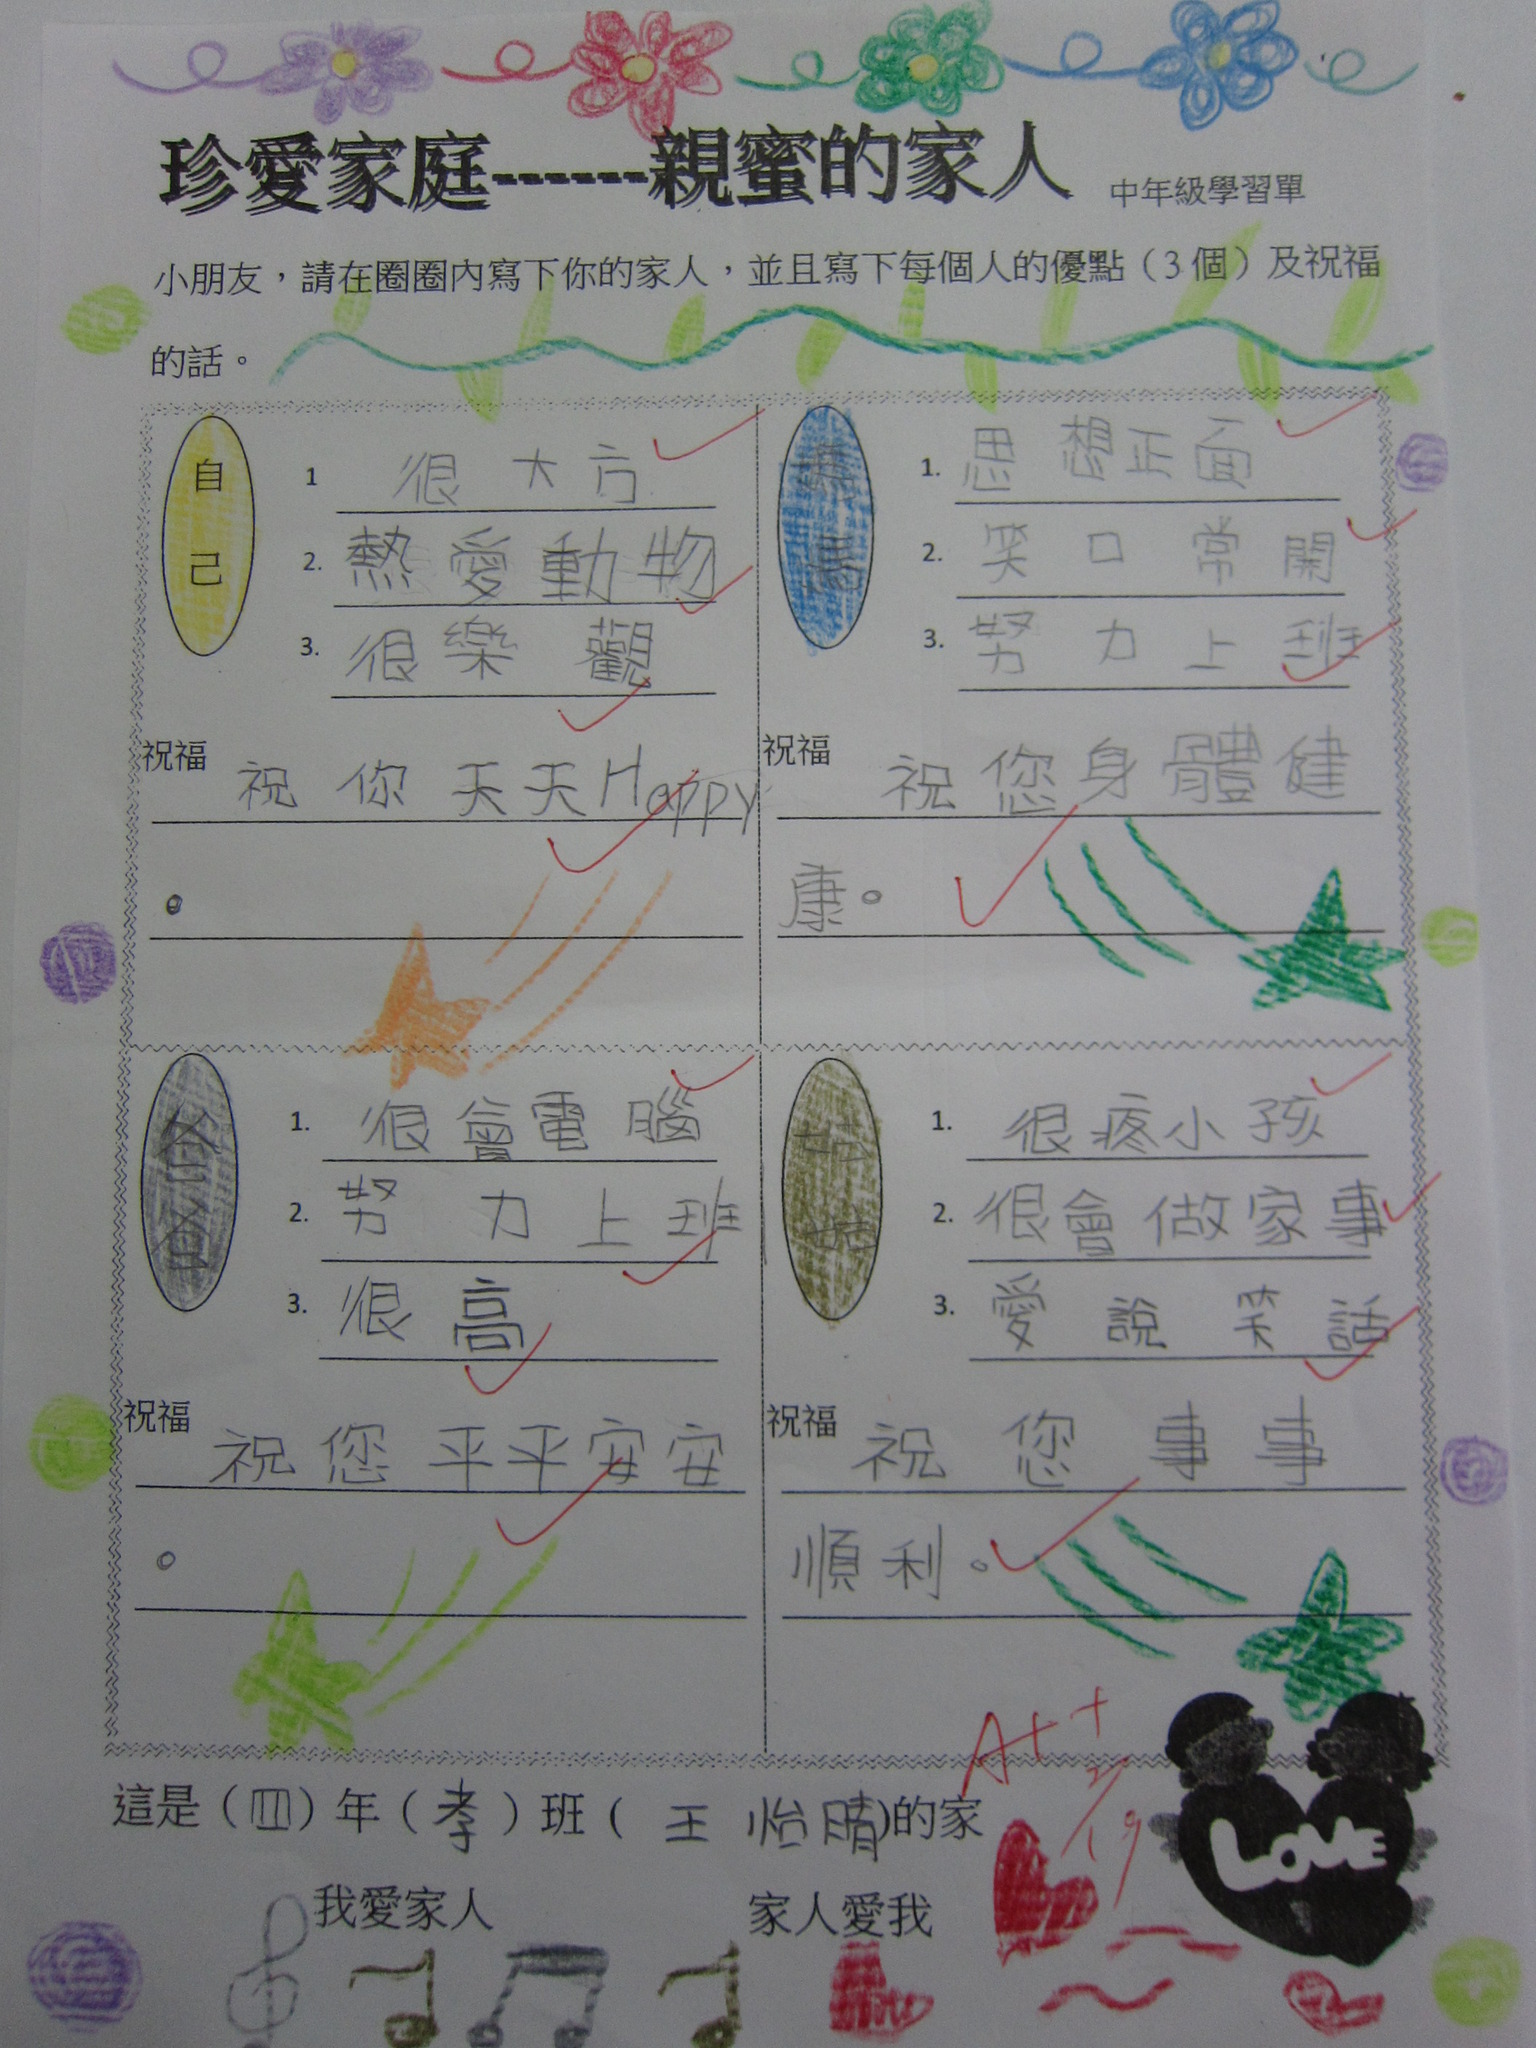 珍愛家庭------親蜜的家人 中年級學習單
小朋友，請在圈圈內寫下你的家人，並且寫下每個人的優點（3個）及祝福
的話。
自己
1 很大方
2. 熱愛動物
3. 很樂觀
祝福 祝你天天Happy
。
媽媽
1. 思想正面
2. 笑口常開
3. 努力上班
祝福 祝您身體健
康。
爸爸
1. 很會電腦
2. 努力上班
3. 很高
祝福 祝您平平安安
。
1. 很疼小孩
2. 很會做家事
3. 愛說笑話
祝福 祝您事事
順利。
A+++
2/19
這是（四）年（孝）班（王怡晴)的家
我愛家人 家人愛我
LOVE